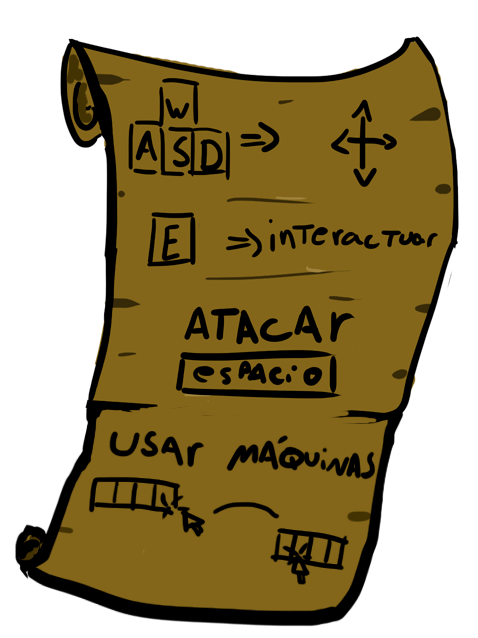 W
A S D =>
E => interactuar
ATACAr
espacio
USAr MÁQUINAS